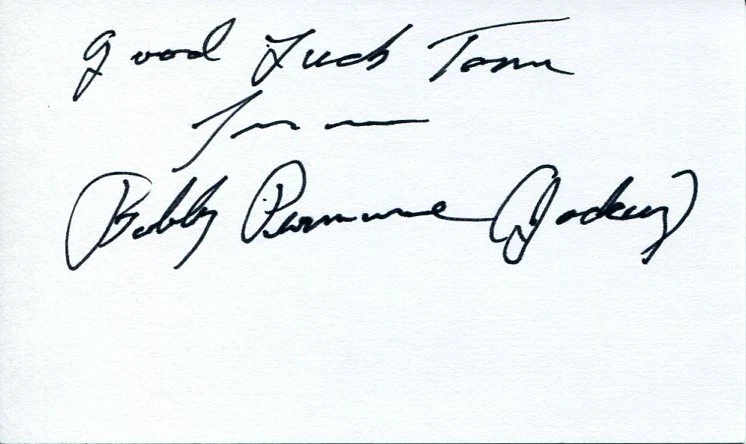 Good Luck Tom
From
Bobby Permane (Jockey)